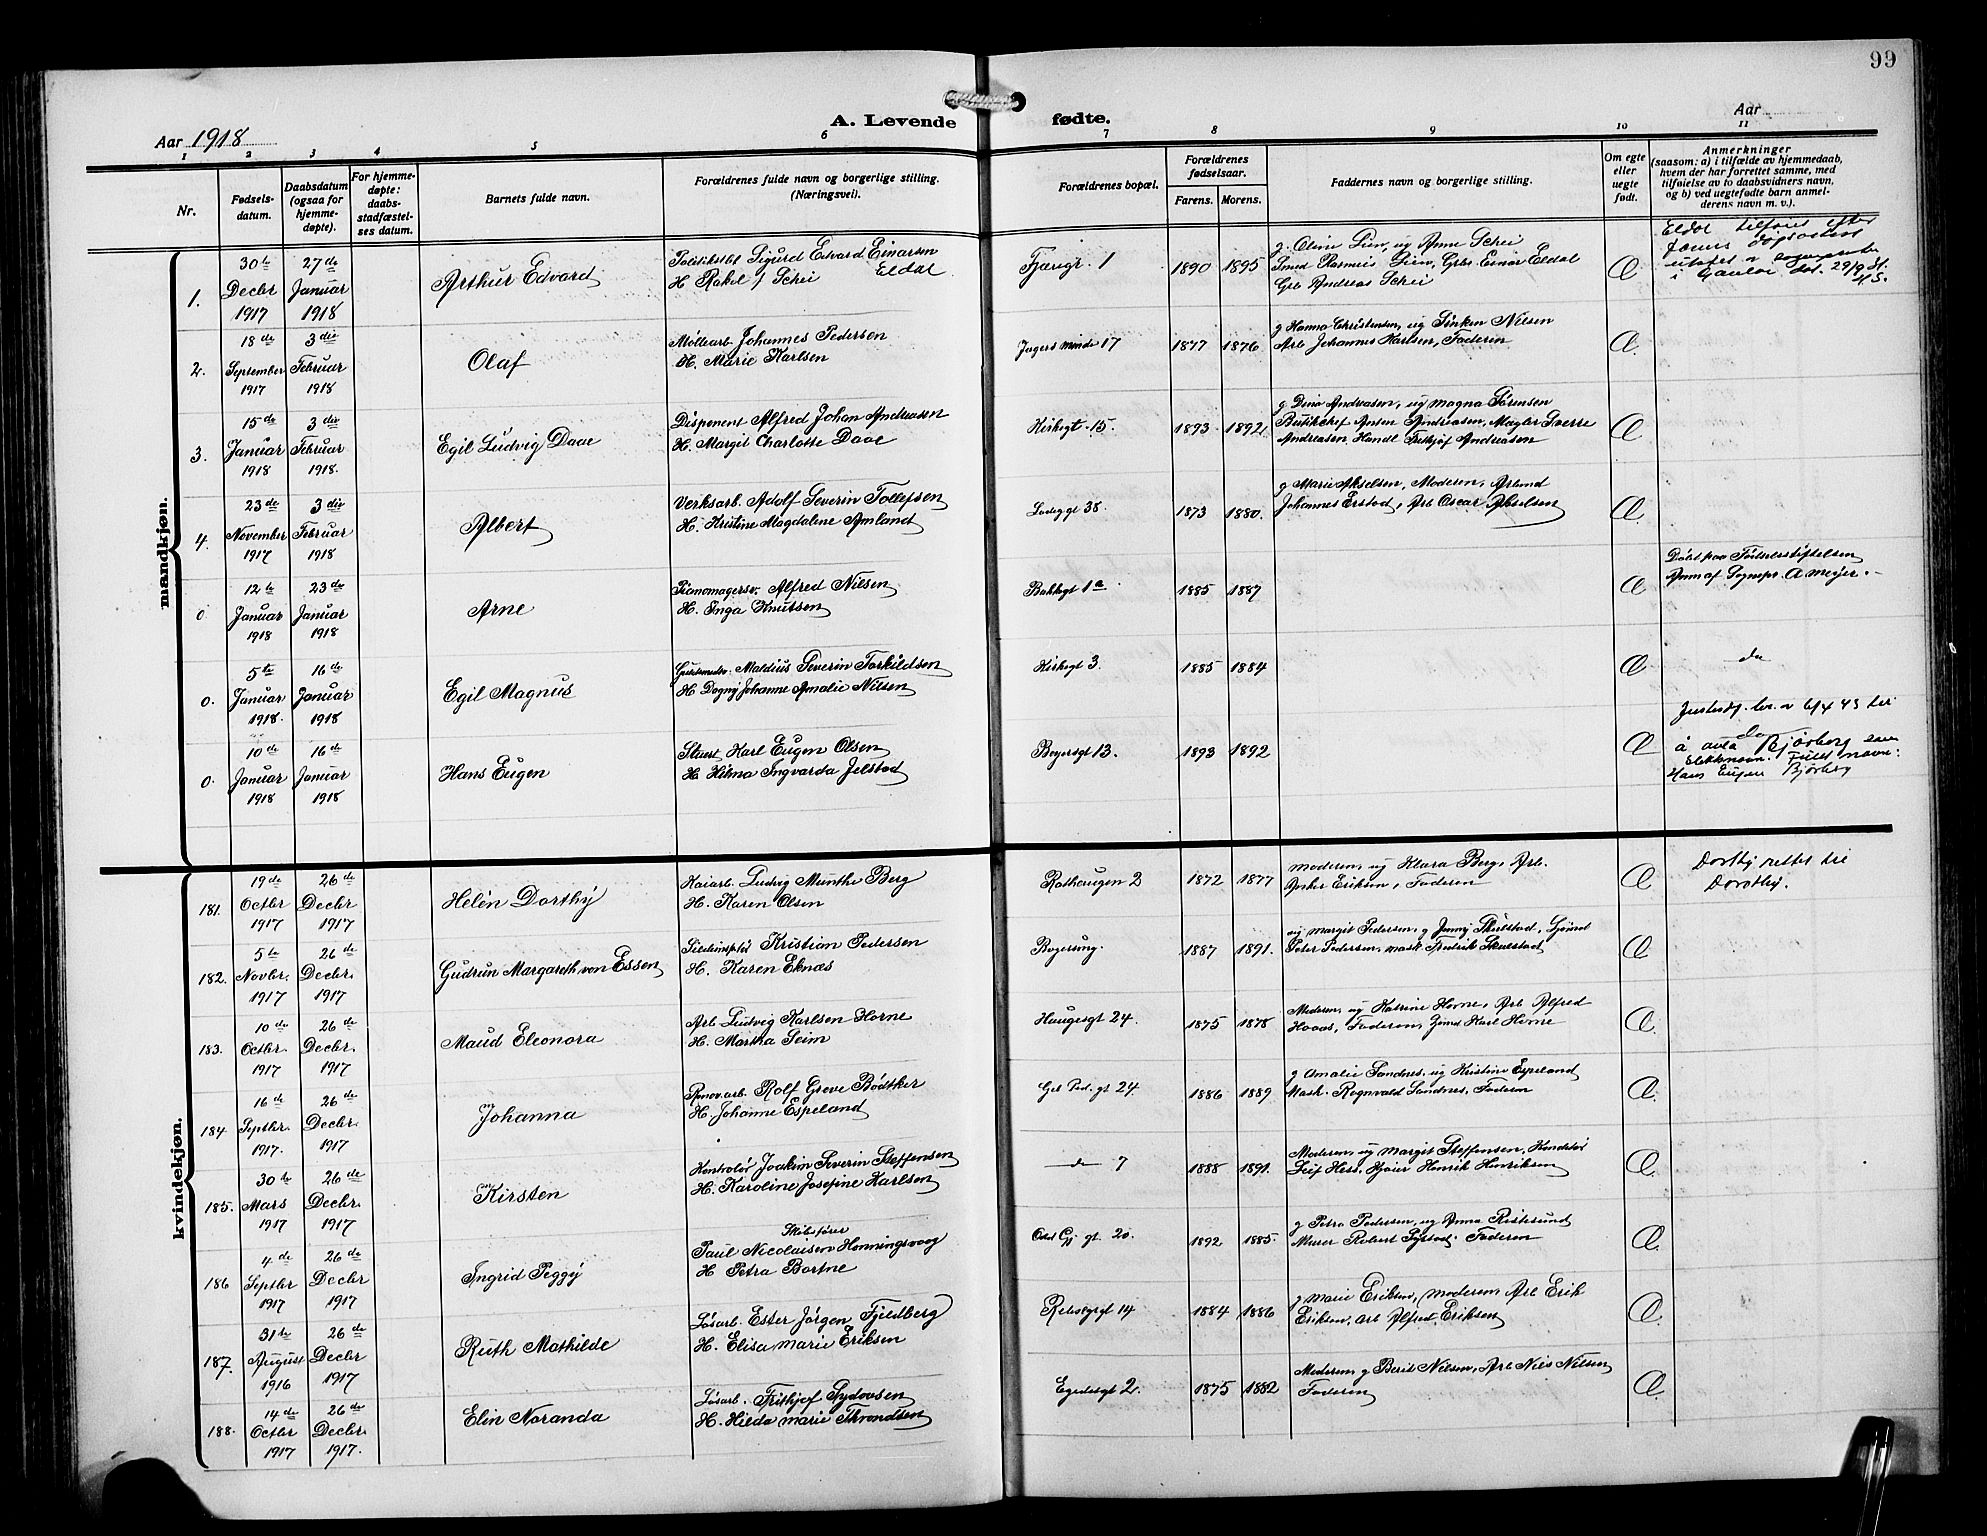 99
Aar 1918
A. Levende fødte.
Aar
1 2 3 4 5 6 7 8 9 10 11
Nr.
Fødsels-
datum.
Daabsdatum
(ogsaa for
hjemme-
døpte).
For hjemme-
døpte:
daabs-
stadfæstel-
ses datum.
Barnets fulde navn.
Forældrenes fulde navn og borgerlige stilling.
(Næringsvei).
Forældrenes bopæl.
Forældrenes
fødselsaar.
Farens. Morens.
Faddernes navn og borgerlige stilling.
Om egte
eller
uegte
født.
Anmerkninger
(saasom: a) i tilfælde av hjemmedaab,
hvem der har forrettet samme, med
tilføielse av to daabsvidners navn,
og b) ved uegtefødte barn anmel-
derens navn m. v.).
mandkjøn.
1.
30te
Decbr
1917
27de
Januar
1918
Arthur Edvard
Politikstbl Sigurd Edvard Einarsen
Eldal
H Rakel f Schei
Fjæregr. 1
1890 1895
g. Oline Lien, ug Anne Schei
Smed Rasmus Lien, Grbr Einar Eldal
Grb Andreas Schei
Æ
Eldal tilføiet efter
2.
18de
September
1917
3die
Februar
1918
Olaf
Møllearb Johannes Pedersen
H. Marie Karlsen
Jægers minde 17
1877 1876
g Hanna Christensen, ug Sinken Nilsen
Arb Johannes Karlsen, Faderen
Æ.
3.
15de
Januar
1918
3die
Februar
1918.
Egil Ludvig Daae
Disponent Alfred Johan Andreasen
H. Margit Charlotte Daae
Kirkegt 15.
1893 1892
g Dina Andreasen, ug Magna Sørensen
Butikchef Anton Andreasen, Magler Sverre
Andreasen, Handl Fritjof Andreasen
Æ
4.
23de
November
1917
3die
Februar
1918
Albert
Verksarb. Adolf Severin Tollefsen
H. Kristine Magdalene Amland
Ladeggt 38.
1873 1880.
g Marie Akselsen, Moderen, Arbmd
Johannes Erstad, Arb Oscar Akselsen
Æ.
0
12te
Januar
1918
23de
Januar
1918
Arne
Pianomagersv. Alfred Nilsen
H. Inga Knutsen
Bakkegt 1a
1885 1887
Æ
Døbt paa Fødselsstiftelsen
Anm af Sognepr. A Meyer.
0.
5te
Januar
1918.
16de
Januar
1918
Egil Magnus
Maldius Severin Torkildsen
H Dagny Johanne Amalie Nilsen
Kirkegt 3.
1885 1884
Æ
do
0.
10de
Januar
1918
16de
Januar
1918
Hans Eugen
Stuert Karl Eugen Olsen
H. Hilma Ingvarda Jelstad
Bøyersgt 13.
1893 1892
Æ
do
Justisdp. bev. av 6/4 43 til
å anta Bjørberg som
slektsnavn. Fullt navn:
Hans Eugen Bjørberg
kvindekjøn.
181.
19de
Octbr
1917
26de
Decbr
1917
Helén Dorthy
Kaiarb. Ludvig Munthe Berg
H. Karen Olsen
Rothaugen 2
1872 1877
Moderen, ug Klara Berg, Arb.
Anker Eriksen, Faderen
Æ
Dorthy rettet til
Dorothy.
182.
5te
Novbr.
1917
26de
Decbr.
1917
Gudrun Margareth von Essen
Kristian Pedersen
H. Karen Eknæs
1887 1891.
ug Margit Pedersen, g Jenny Skulstad, Sjömd
Peter Pedersen, Mask Fredrik Skulstad
Æ
183.
10de
Octbr.
1917
26de
Decbr.
1917
Maud Eleonora
Arb Ludvig Karlsen Horne
H. Martha Seim
Haugesgt 24.
1875 1878
Moderen, ug Katrine Horne, Arb Alfred
Haaas, Faderen, Tjmd Karl Horne
Æ.
184
16de
Septbr.
1917.
26de
Decbr.
1917
Johanna
Renov.arb. Rolf Greve Bødtker
H. Johanne Espeland
Gbl Ped. gt 24
1886 1889
g Amalie Sandnes, ug Kristine Espeland
Mask. Rognvald Sandnes, Faderen
Æ.
185.
30te
Mars
1917
26de
Decbr.
1917
Kirsten
Kontrolør Joakim Severin Steffensen
H. Karoline Josefine Karlsen
do 7
1888 1891.
Moderen, ug Margit Steffensen, Konditor
Leif Hess, Kjøier Henrik Henriksen
Æ.
186
4de
Septbr
1917
26de
Decbr
1917
Ingrid Peggy
Skibsfører
Paul Nicolaisen Honningsvaag
H Petra Bortne
gt. 20.
1892 1885.
g Petra Pedersen, ug Anna Ristesund
Murer Robert Systad, Faderen
Æ.
187.
31te
August
1916
26de
Decbr
1917
Ruth Mathilde
Løsarb. Ester Jørgen Fjeldberg
H. Elisa Marie Eriksen
14
1884 1886
g Marie Eriksen, Moderen, Arb Erik
Eriksen, Arb Alfred Eriksen
Æ.
188.
14de
Octbr
1917
26de
Decbr.
1917.
Elin Noranda
Løsarb. Frithjof Sydovsen
H. Hilda Marie Throndsen
Egedesgt 2.
1875 1882
Moderen, g Berit Nilsen, Arb Nils Nilsen
Faderen
Æ.